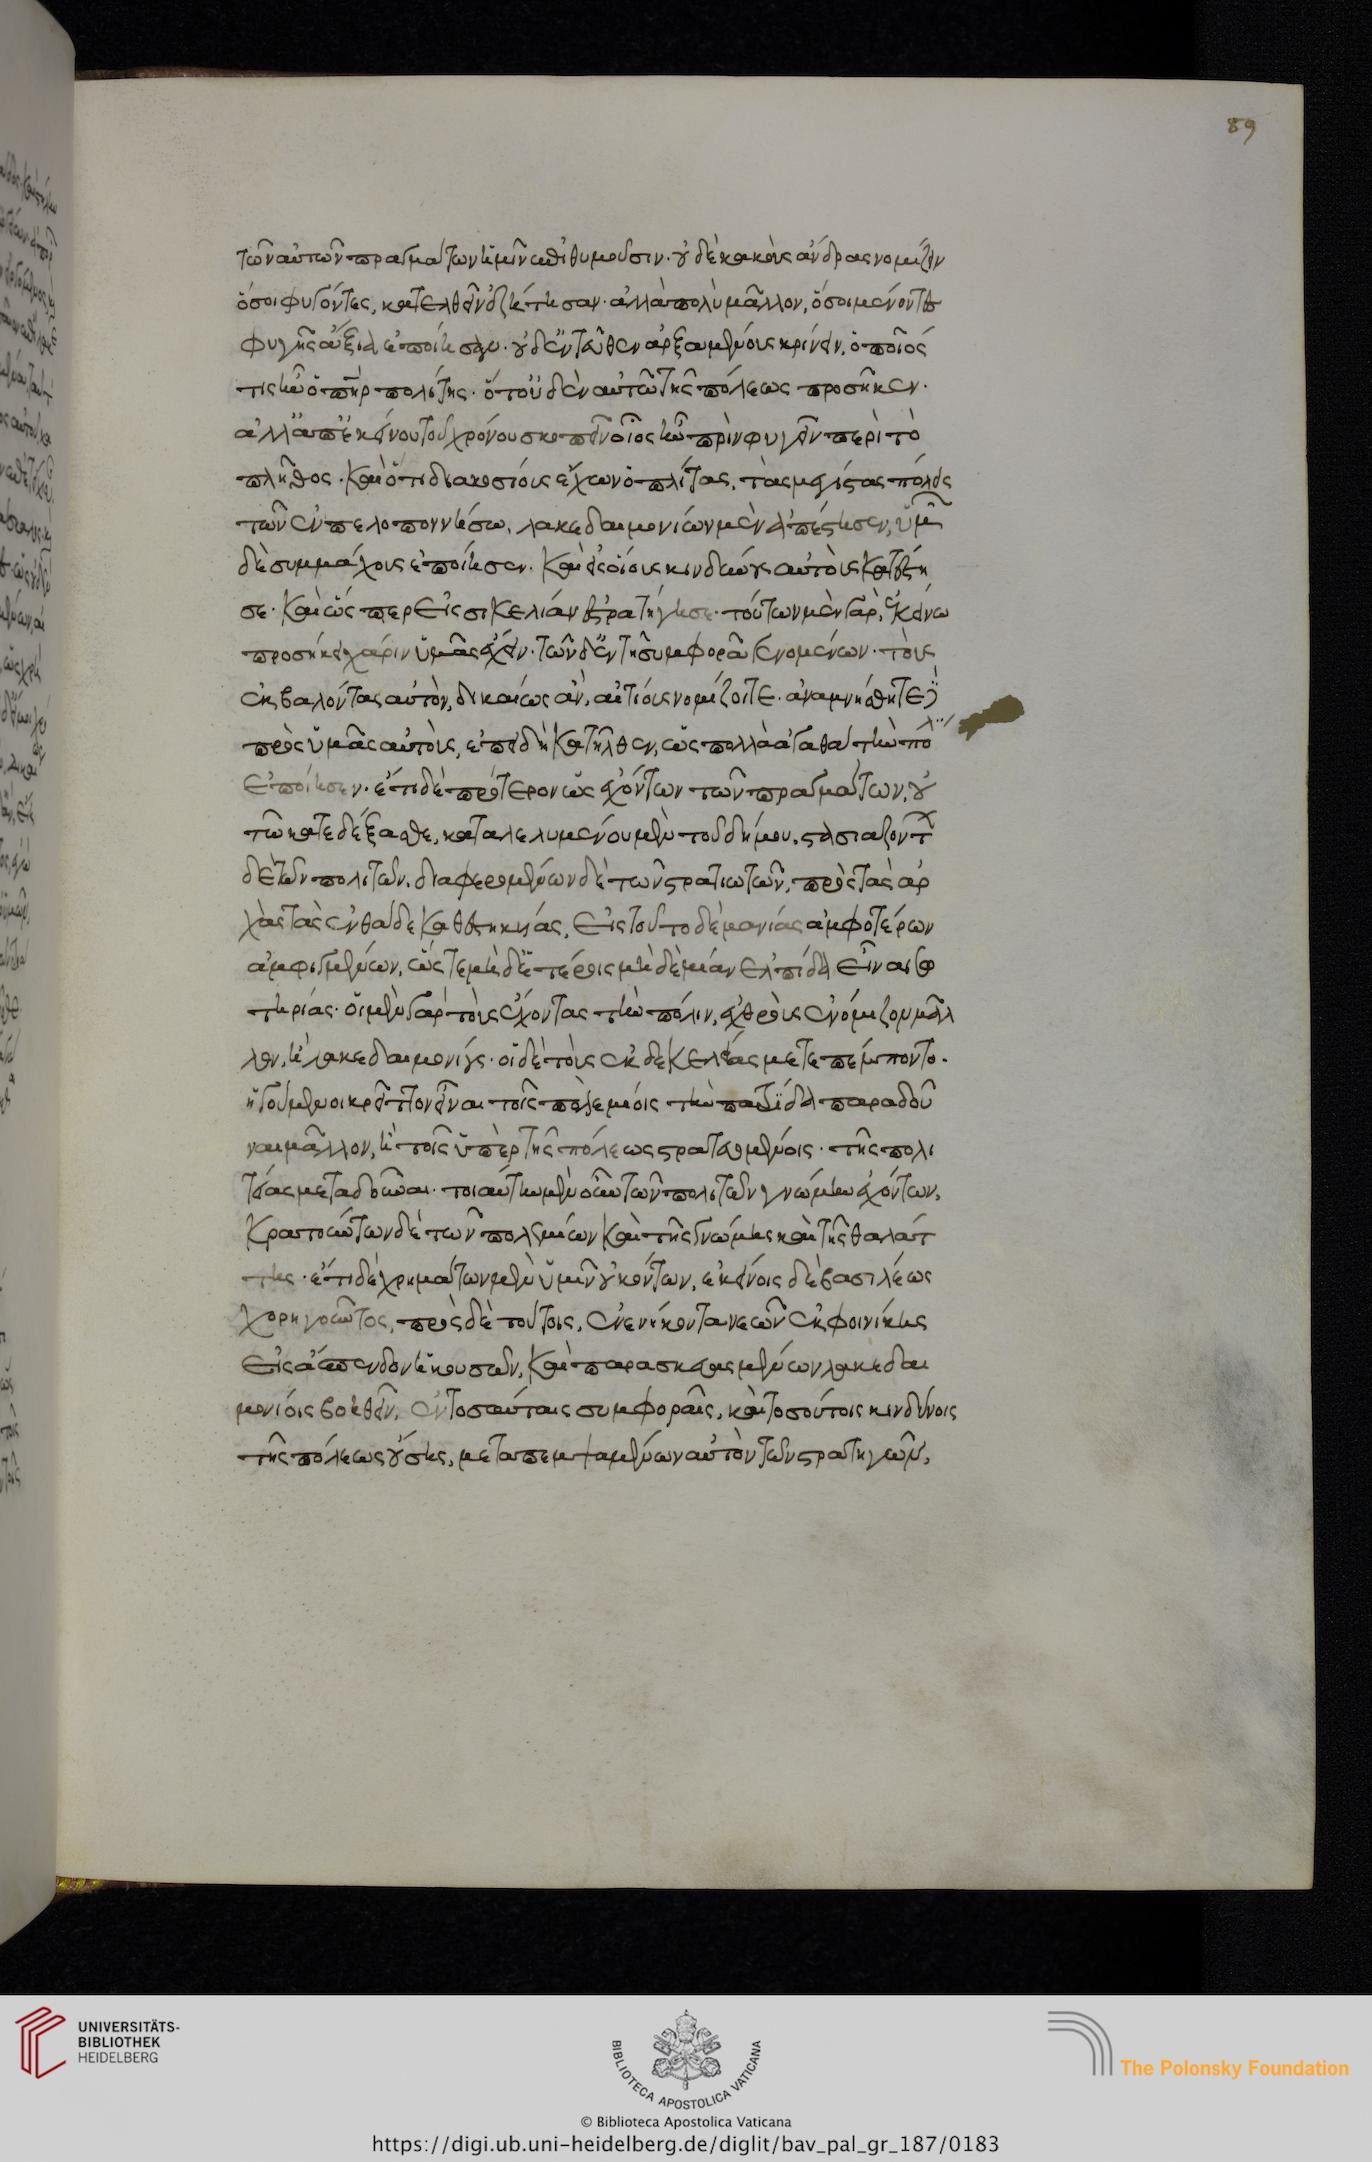 τῶν αὐτῶν πραγμάτων ἡμῖν ἐπιθυμοῦσιν· οὐδὲ κακοὺς ἄνδρας νομίζειν
ὅσοι φυγόντες, κατελθεῖν ἐζήτησαν· ἀλλὰ πολὺ μᾶλλον, ὅσοι μένοντες
φυγῆς ἄξια ἐποίησαν· οὐδ' ἐντεῦθεν ἀρξαμένους κρίνειν, ὁποῖός
τις ἦν ὁ πηρ πολίτης· ὅτ' οὐδὲν αὐτῷ τῆς πόλεως προσῆκεν·
ἀλλ' ἀπ' ἐκείνου τοῦ χρόνου σκοπεῖν οἷος ἦν πρὶν φυγεῖν περὶ τὸ
πλῆθος· καὶ ὅτι διακοσίους ἔχων ὁπλίτας, τὰς μεγίστας πόλεις
τῶν ἐν πελοποννήσω, λακεδαιμονίων μὲν ἀπέστησεν, ὑμῖν
δὲ συμμάχους ἐποίησεν· καὶ εἰς οἵους κινδύνους αὐτοὺς κατέστη
σε· καὶ ὥσπερ εἰς σικελίαν ἐστρατήγησε· τούτων μὲν γὰρ, ἐκείνω
προσήκει χάριν ὑμᾶς ἔχειν· τῶν δ' ἐν τῇ συμφορᾶ γενομένων· τοὺς
ἐκβαλόντας αὐτὸν, δικαίως ἂν, αἰτίους νομίζοιτε· ἀναμνήσθητε δὲ
πρὸς ὑμᾶς αὐτοὺς, ἐπειδὴ κατῆλθεν, ὡς πολλὰ ἀγαθὰ τὴν πόλιν
ἐποίησεν· ἔτι δὲ πρότερον ὡς ἐχόντων τῶν πραγμάτων, οὐ
τω κατεδέξασθε, καταλελυμένου μὲν τοῦ δήμου, στασιαζόντων
δὲ τῶν πολιτῶν, διαφερομένων δὲ τῶν στρατιωτῶν, πρὸς τὰς ἀρ
χὰς τὰς ἐνθάδε καθεστηκυίας, εἰς τοῦτο δὲ μανίας ἀμφοτέρων
ἀμφιγμένων, ὥστε μηδ' ἑτέροις μηδεμίαν ἐλπίδα εἶναι σω
τηρίας· οἱ μὲν γὰρ τοὺς ἔχοντας τὴν πόλιν, ἐχθροὺς ἐνόμιζον μᾶλ
λον, ἢ λακεδαιμονίους· οἱ δὲ τοὺς ἐκ δεκελείας μετεπέμποντο·
ἡγούμενοι κρεῖττον εἶναι τοῖς πολεμίοις τὴν πατρίδα παραδοῦ
ναι μᾶλλον, ἢ τοῖς ὑπὲρ τῆς πόλεως στρατευομένοις· τῆς πολι
τείας μεταδοῦναι· τοιαύτην μὲν οὖν τῶν πολιτῶν γνώμην ἐχόντων,
κρατούντων δὲ τῶν πολεμίων καὶ τῆς γνώμης καὶ τῆς θαλάτ
της· ἔτι δὲ χρημάτων μὲν ὑμῖν οὐκ ὄντων, ἐκείνοις δὲ βασιλέως
χορηγοῦντος, πρὸς δὲ τούτοις, ἐνενήκοντα νεῶν ἐκ φοινίκης
εἰς ἄσπενδον ἡκουσῶν, καὶ παρασκευασμένων λακεδαι
μονίοις βοηθεῖν, ἐν τοσαύταις συμφοραῖς, καὶ τοσούτοις κινδύνοις
τῆς πόλεως οὔσης, μεταπεμψαμένων αὐτὸν τῶν στρατηγῶν,
89
UNIVERSITÄTS-
BIBLIOTHEK
HEIDELBERG
BIBLIOTECA APOSTOLICA VATICANA
The Polonsky Foundation
© Biblioteca Apostolica Vaticana
https://digi.ub.uni-heidelberg.de/diglit/bav_pal_gr_187/0183